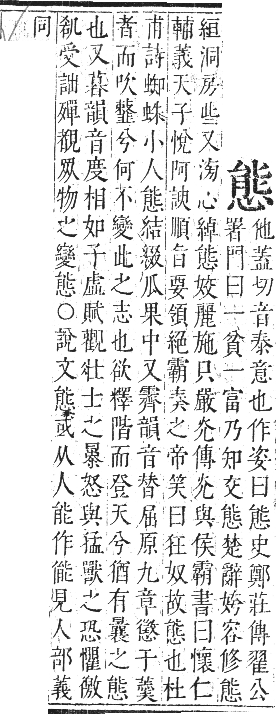 態
他蓋切音泰意也作姿曰態史鄭莊傳翟公
署門曰一貧一富乃知交態楚辭姱容修態
絙洞房些又滂心綽態姣麗施只嚴光傳光與侯霸書曰懷仁
輔義天子悅阿諛順旨要領絕霸奏之帝笑曰狂奴故態也杜
甫詩蜘蛛小人態結綴瓜果中又霽韻音替屈原九章懲于羹
者而吹韲兮何不變此之志也欲釋階而登天兮猶有曩之態
也又暮韻音度相如子虛賦觀壯士之暴怒與猛獸之恐懼徼
受詘殫覩眾物之變態○說文態或从人能作能見人部義
同